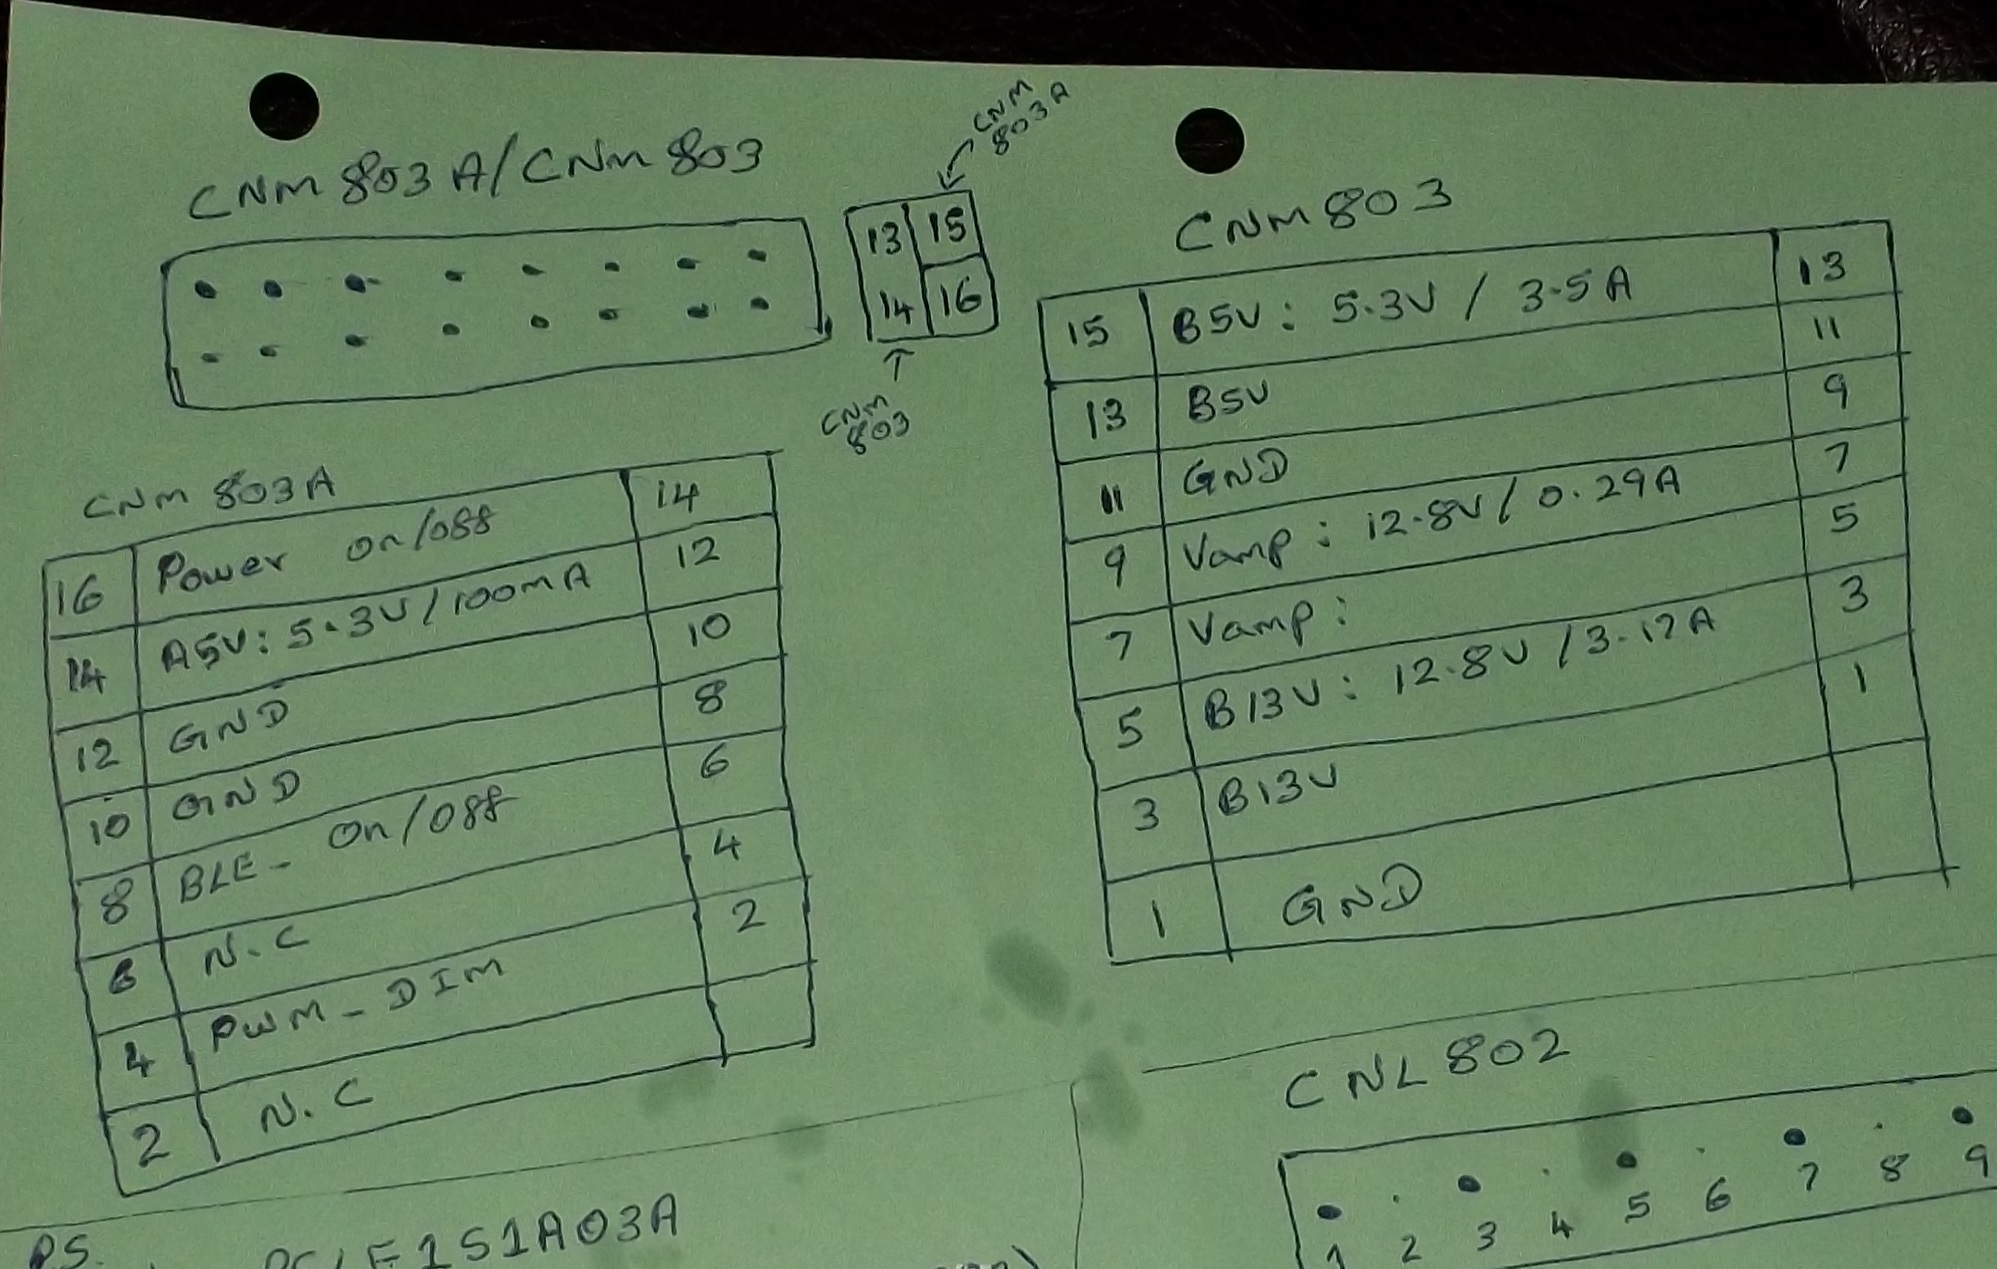 CNM 803A/CNM 803
CNM
803A
13 15
14 16
CNM
803
CNM 803A
16 Power on/off 14
14 A5V: 5.3V/100mA 12
12 GND 10
10 GND 8
8 BLE- on/off 6
6 N.C 4
4 PWM-DIM 2
2 N.C
CNM 803
15 B5V: 5.3V / 3.5A 13
13 B5V 11
11 GND 9
9 Vamp: 12.8V/0.29A 7
7 Vamp: 5
5 B13V: 12.8V/3.17A 3
3 B13V 1
1 GND
CNL 802
1 2 3 4 5 6 7 8 9
PS.